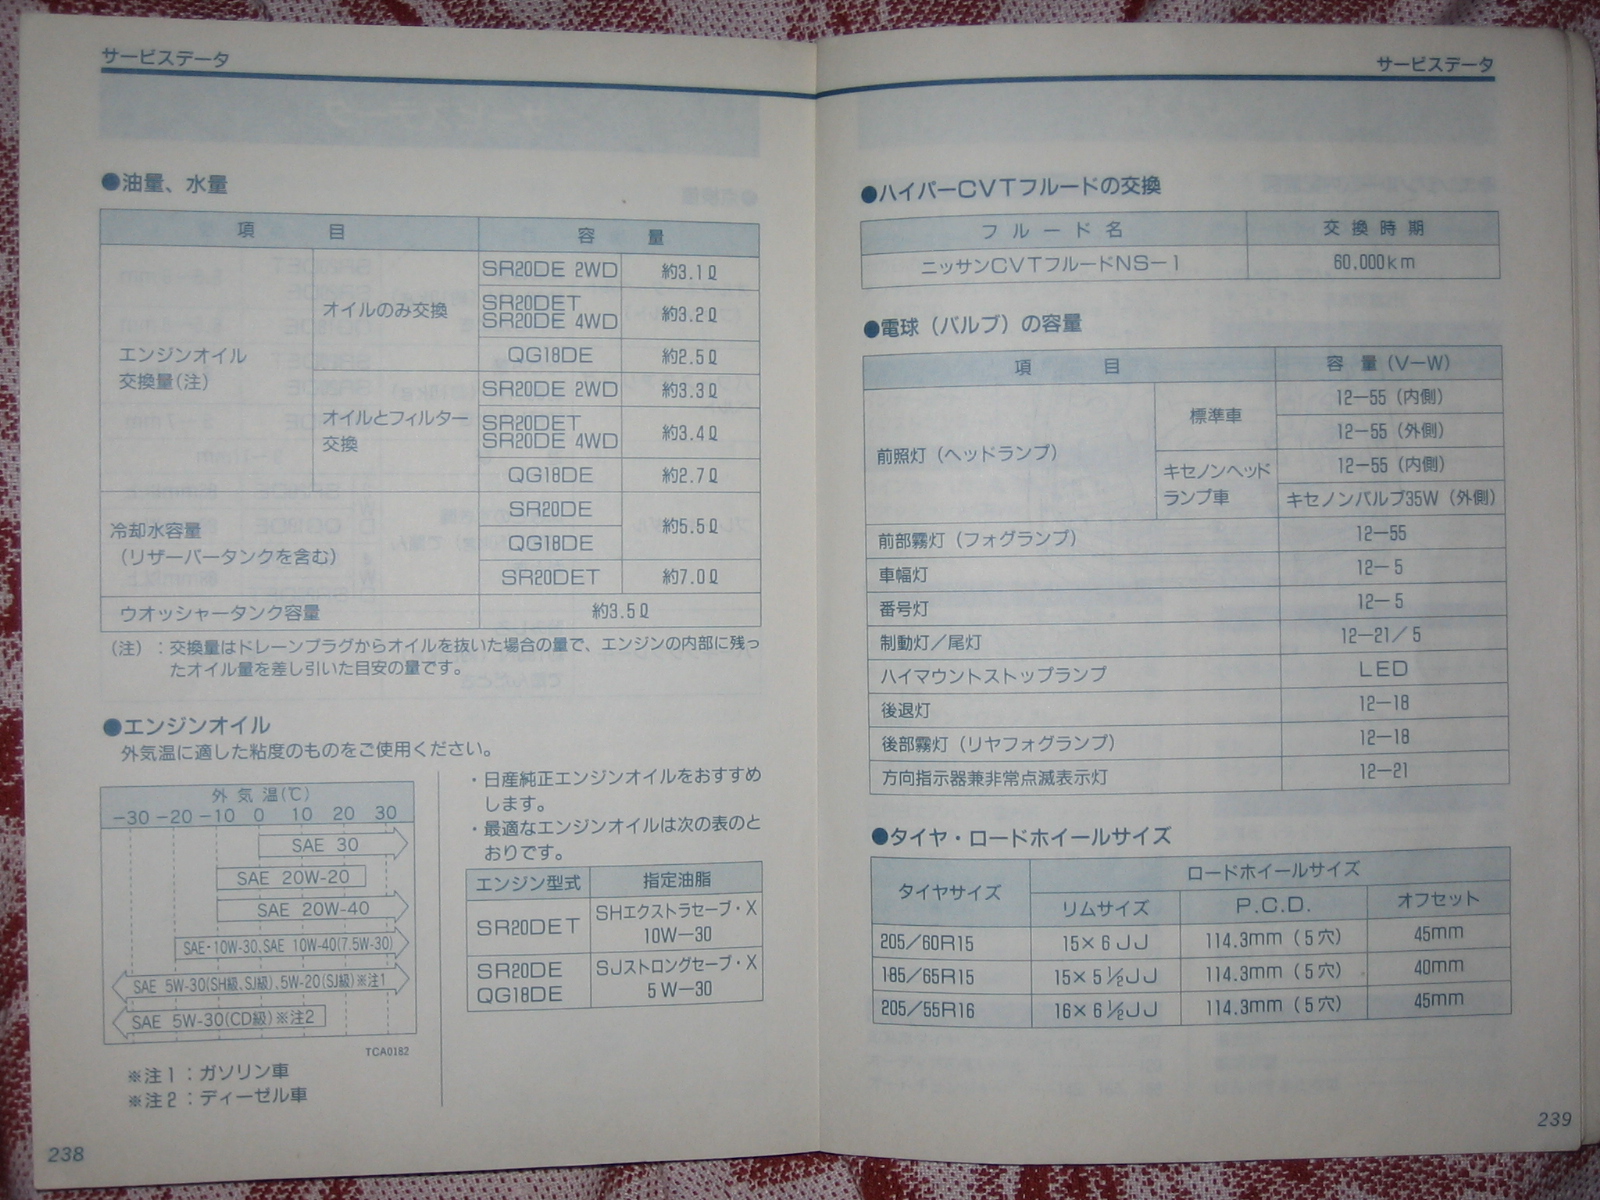 サービスデータ
●油量、水量
項 目 容 量
エンジンオイル交換量(注) オイルのみ交換 SR20DE 2WD 約3.1ℓ
SR20DET SR20DE 4WD 約3.2ℓ
QG18DE 約2.5ℓ
オイルとフィルター交換 SR20DE 2WD 約3.3ℓ
SR20DET SR20DE 4WD 約3.4ℓ
QG18DE 約2.7ℓ
冷却水容量(リザーバータンクを含む) SR20DE QG18DE 約5.5ℓ
SR20DET 約7.0ℓ
ウオッシャータンク容量 約3.5ℓ
(注):交換量はドレーンプラグからオイルを抜いた場合の量で、エンジンの内部に残っ
たオイル量を差し引いた目安の量です。
●エンジンオイル
外気温に適した粘度のものをご使用ください。
外気温(℃)
−30 −20 −10 0 10 20 30
SAE 30
SAE 20W-20
SAE 20W-40
SAE-10W-30、SAE 10W-40(7.5W-30)
SAE 5W-30(SH級、SJ級)、5W-20(SJ級)※注1
SAE 5W-30(CD級)※注2
TCA0182
※注1:ガソリン車
※注2:ディーゼル車
・日産純正エンジンオイルをおすすめ
します。
・最適なエンジンオイルは次の表のと
おりです。
エンジン型式 指定油脂
SR20DET SHエクストラセーブ・X
10W−30
SR20DE SJストロングセーブ・X
QG18DE 5W−30
238
サービスデータ
●ハイパーCVTフルードの交換
フルード名 交換時期
ニッサンCVTフルードNS−1 60,000km
●電球(バルブ)の容量
項 目 容 量(V−W)
前照灯(ヘッドランプ) 標準車 12−55(内側)
12−55(外側)
キセノンヘッドランプ車 12−55(内側)
キセノンバルブ35W(外側)
前部霧灯(フォグランプ) 12−55
車幅灯 12−5
番号灯 12−5
制動灯/尾灯 12−21/5
ハイマウントストップランプ LED
後退灯 12−18
後部霧灯(リヤフォグランプ) 12−18
方向指示器兼非常点滅表示灯 12−21
●タイヤ・ロードホイールサイズ
タイヤサイズ ロードホイールサイズ
リムサイズ P.C.D. オフセット
205/60R15 15×6JJ 114.3mm(5穴) 45mm
185/65R15 15×5½JJ 114.3mm(5穴) 40mm
205/55R16 16×6½JJ 114.3mm(5穴) 45mm
239